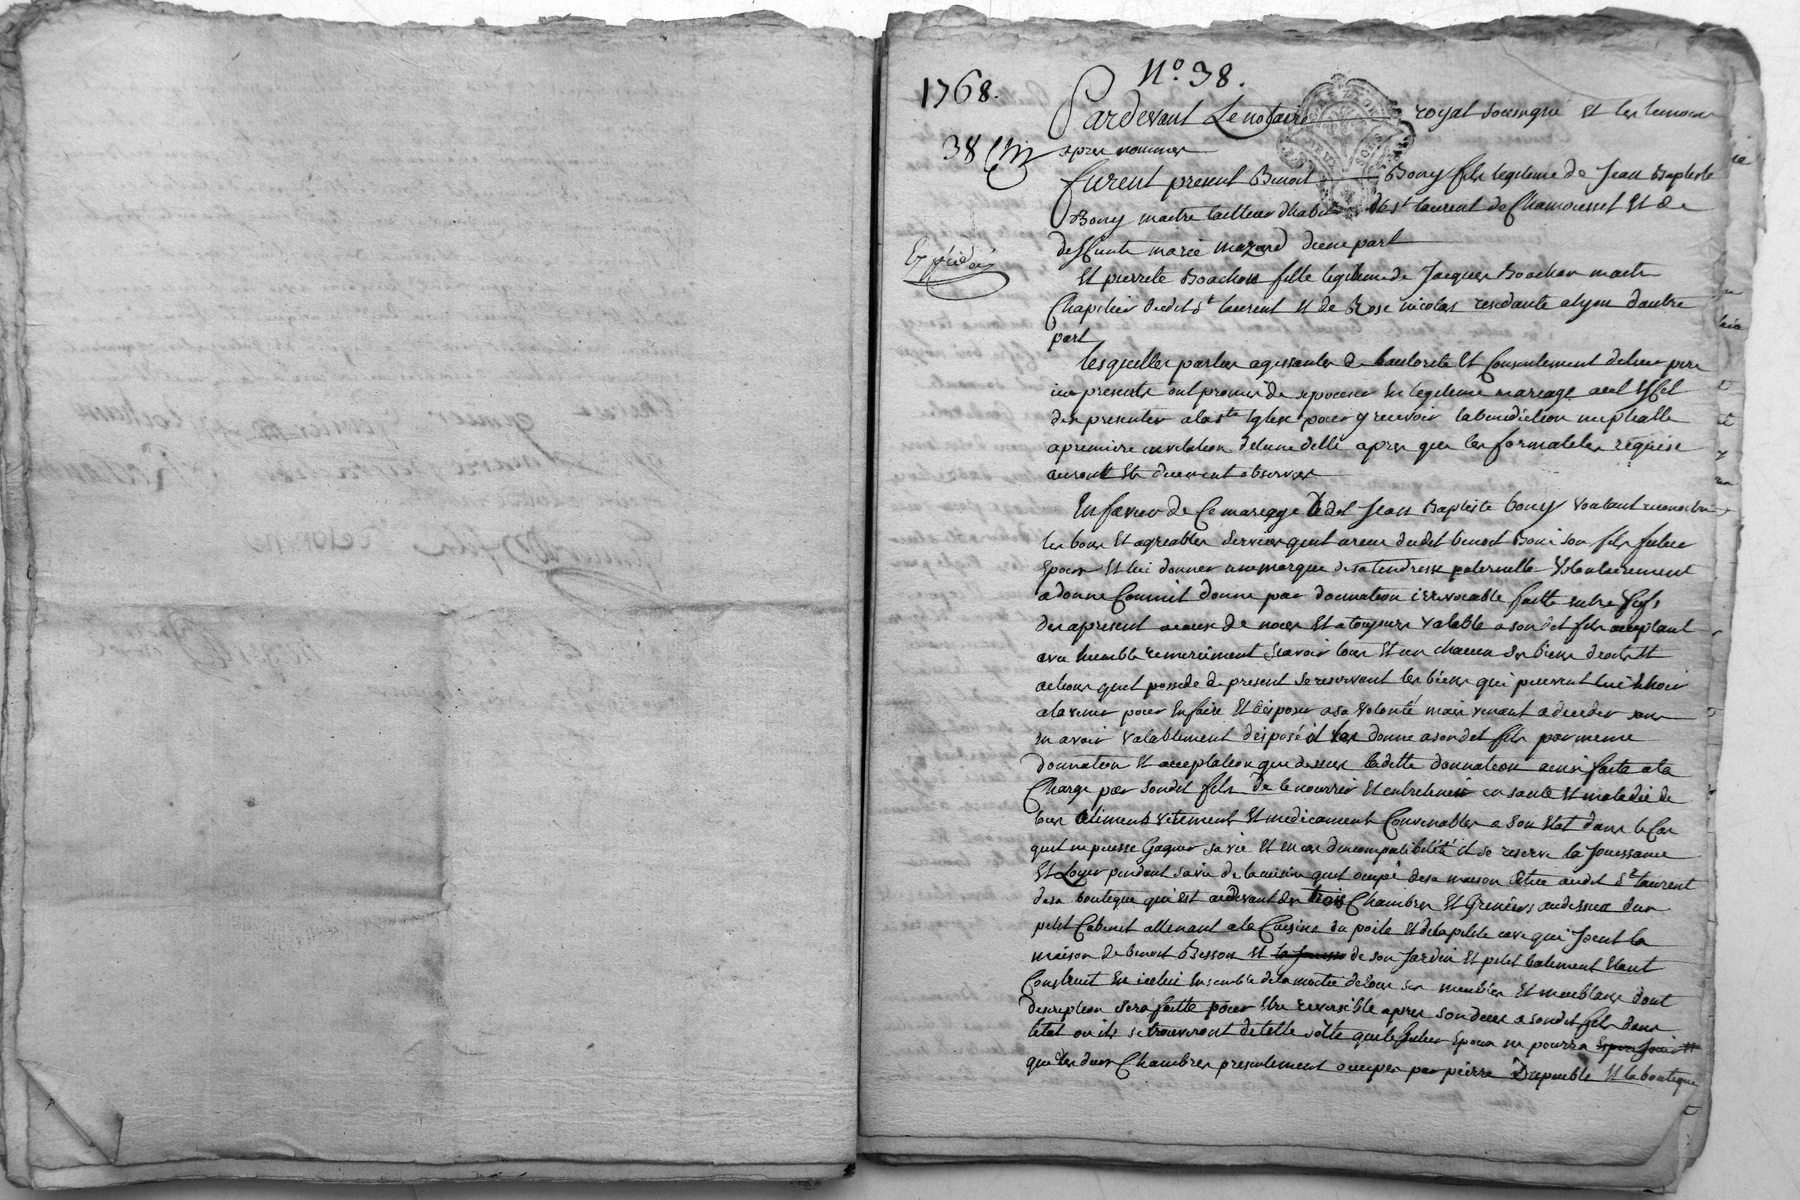 1768.
N.o 38.
38 Cm
Expédié
Pardevant Le notaire royal soussigné Et les temoins
apres nommés
furent present Benoit Bony fils legitime de Jean Baptiste
Bony maitre tailleur dhabit de St laurent de Chamousset Et de
deffunte marie mazard dune part
Et pierrete Boachon fille legitime de Jacques Boachon maitre
Chapelier dudit St laurent Et de Rose nicolas residante a lyon dautre
part
lesquelles parties agissantes de lautorité Et Consentement de leur pere
icy presents ont promis de sepouser En legitime mariage a cet Effet
de se presenter a la ste Eglise pour y recevoir la benediction nuptialle
a premiere invitation de lune delle apres que les formalités réquise
auront Eté duement observées
En faveur de Ce mariage ledit Jean Baptiste bony voulant reconoitre
les bons Et agreables services quil a reçu dudit benoit Boni son fils futur
Epoux Et lui donner une marque de sa tendresse paternelle volontairement
a donné Comme il donne par donnation irrevocable faitte entre vifs
des apresent a cause de noces Et a toujours valable a son dit fils acceptant
avec humble remerciment scavoir tous Et un chacun ses biens droits Et
actions quil possede de present se reservant les biens qui peuvent lui Echoir
a lavenir pour En faire Et disposer a sa volonté mais venant a deceder sans
En avoir valablement disposé il les donne a son dit fils par meme
donnation Et acceptation que dessus ladette donnation ainsi faite a la
Charge par son dit fils de le nourrir Et entretenir en santé Et maladie de
tous aliments vetements Et medicament Convenables a son Etat dans le Cas
quil ne puisse Gagner sa vie Et En cas dincompatibilité il se reserve la Jouissance
Et Loyer pendant sa vie de la cuisine quil ocupe de sa maison située audit St laurent
de sa boutique qui Est au devant des trois Chambres Et Greniers au dessus dun
petit Cabinet attenant a la Cuisine du poile Et de la petite cave qui Joint la
maison de benoit Besson Et de son Jardin Et petit batiment Etant
Construit En icelui Ensemble de la moitié de tous ses meubles Et meublans dont
description sera faitte pour Etre reversible apres son deces a son dit fils dans
letat ou ils se trouveront de telle sorte que le futur Epoux ne pourra
que les deux Chambres presentement occupées par pierre Et la boutique